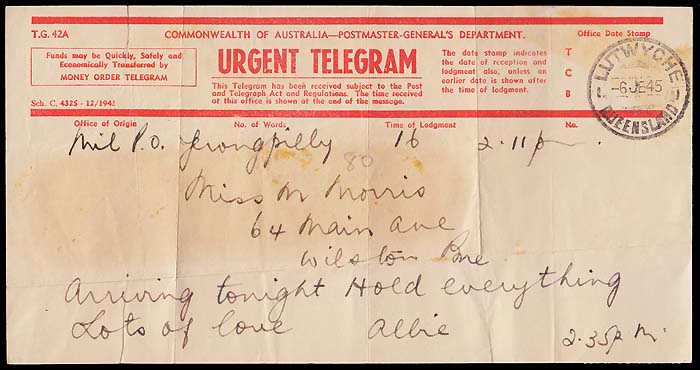 T.G. 42A
COMMONWEALTH OF AUSTRALIA—POSTMASTER-GENERAL'S DEPARTMENT.
Office Date Stamp
Funds may be Quickly, Safely and
Economically Transferred by
MONEY ORDER TELEGRAM
URGENT TELEGRAM
This Telegram has been received subject to the Post
and Telegraph Act and Regulations. The time received
at this office is shown at the end of the message.
The date stamp indicates
the date of reception and
lodgment also, unless an
earlier date is shown after
the time of lodgment.
T
C
B
LUTWYCHE
-6JE45
QUEENSLAND
Sch. C. 4325 - 12/194
Office of Origin
No. of Words
Time of Lodgment
No.
Mil P.O. Yerongpilly 16 2.11p
80
Miss M Morris
64 Main Ave
Wilston Bne
Arriving tonight Hold everything
Lots of love Albie
2.35p m